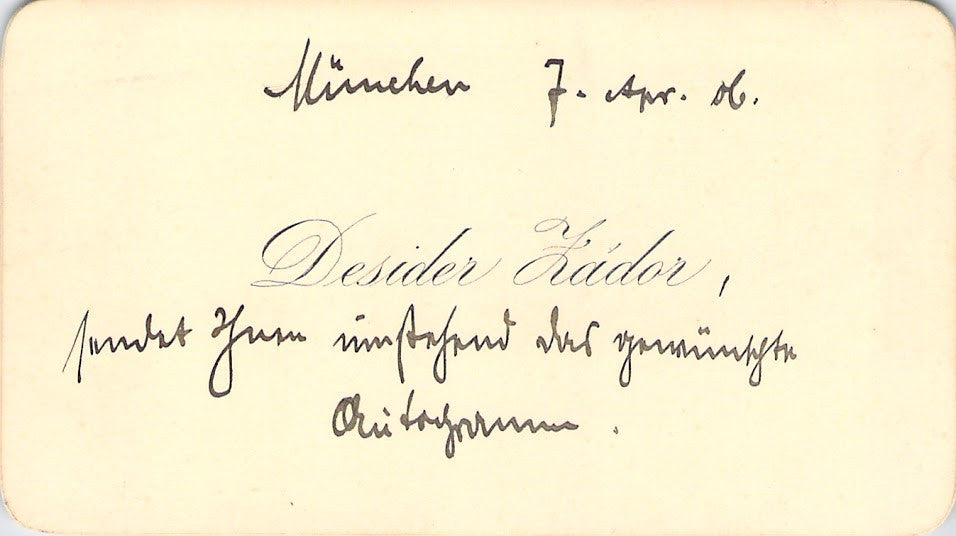 München 7. Apr. 06.
Desider Zádor,
sendet Ihnen umstehend das gewünschte
Autogramm.